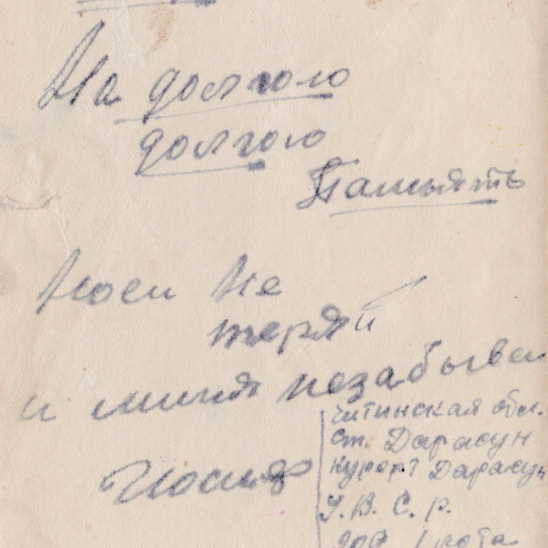 На долгою
долгою
Памьять
Носи Не
теряй
и миня незабывай
Читинская обл.
ст. Дарасун
курорт Дарасун
У. В. С. р.
рота